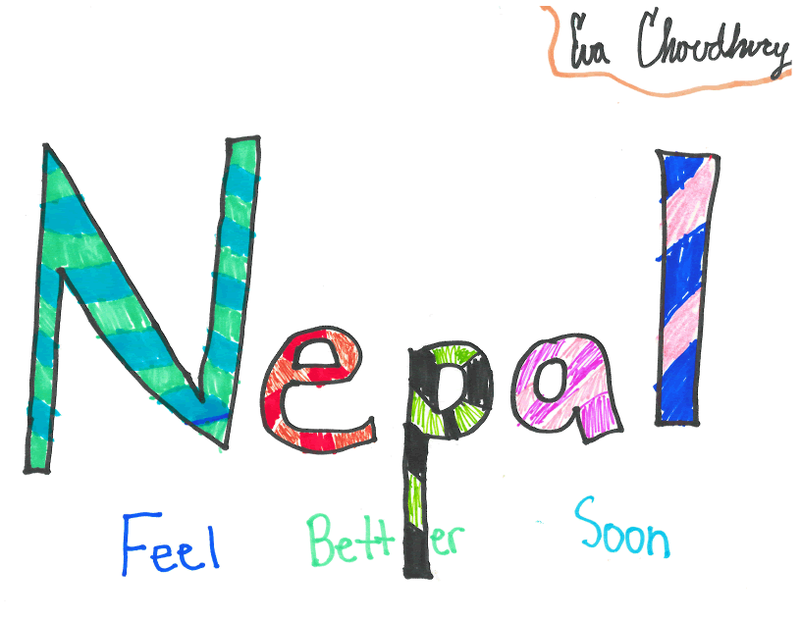 Eva Choudhury
Nepal
Feel Better Soon